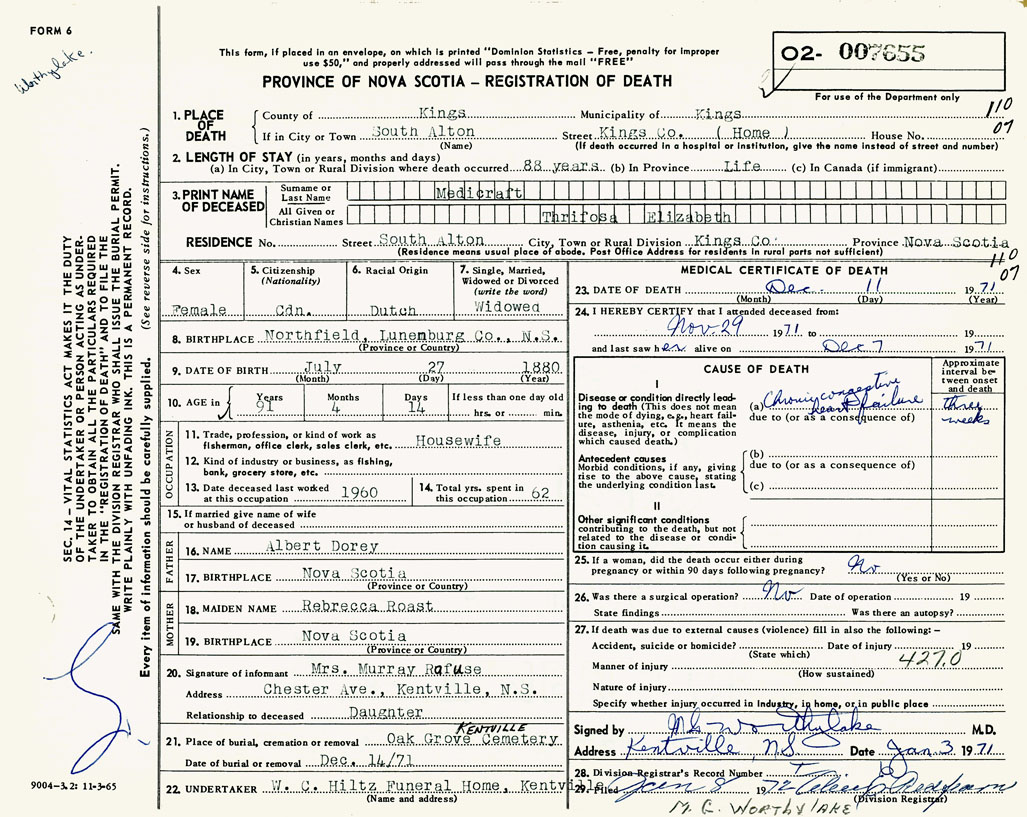 FORM 6
Worthylake.
This form, if placed in an envelope, on which is printed "Dominion Statistics – Free, penalty for improper
use $50," and properly addressed will pass through the mail "FREE"
PROVINCE OF NOVA SCOTIA – REGISTRATION OF DEATH
02- 007655
For use of the Department only
110
07
1. PLACE OF DEATH
County of Kings Municipality of Kings
If in City or Town South Alton Street Kings Co. ( Home ) House No.
(Name) (If death occurred in a hospital or institution, give the name instead of street and number)
2. LENGTH OF STAY (in years, months and days)
(a) In City, Town or Rural Division where death occurred 88 years. (b) In Province Life (c) In Canada (if immigrant)
3. PRINT NAME OF DECEASED
Surname or Last Name Medicraft
All Given or Christian Names Thrifosa Elizabeth
RESIDENCE No. Street South Alton City, Town or Rural Division Kings Co. Province Nova Scotia
(Residence means usual place of abode. Post Office Address for residents in rural parts not sufficient)
110
07
4. Sex
Female
5. Citizenship
(Nationality)
Cdn.
6. Racial Origin
Dutch
7. Single, Married,
Widowed or Divorced
(write the word)
Widowed
8. BIRTHPLACE Northfield, Lunenburg Co., N.S.
(Province or Country)
9. DATE OF BIRTH July 27 1880
(Month) (Day) (Year)
10. AGE in
Years Months Days If less than one day old
91 4 14 hrs. or min.
OCCUPATION
11. Trade, profession, or kind of work as
fisherman, office clerk, sales clerk, etc. Housewife
12. Kind of industry or business, as fishing,
bank, grocery store, etc.
13. Date deceased last worked
at this occupation 1960
14. Total yrs. spent in
this occupation 62
15. If married give name of wife
or husband of deceased
FATHER
16. NAME Albert Dorey
17. BIRTHPLACE Nova Scotia
(Province or Country)
MOTHER
18. MAIDEN NAME Rebrecca Roast
19. BIRTHPLACE Nova Scotia
(Province or Country)
20. Signature of informant Mrs. Murray Rafuse
Address Chester Ave., Kentville, N.S.
Relationship to deceased Daugnter
KENTVILLE
21. Place of burial, cremation or removal Oak Grove Cemetery
Date of burial or removal Dec. 14/71
22. UNDERTAKER W. C. Hiltz Funeral Home, Kentville
(Name and address)
MEDICAL CERTIFICATE OF DEATH
23. DATE OF DEATH Dec. 11 1971
(Month) (Day) (Year)
24. I HEREBY CERTIFY that I attended deceased from:
Nov 29 1971 to 19
and last saw her alive on Dec 7 1971
CAUSE OF DEATH
Approximate
interval be-
tween onset
and death
I
Disease or condition directly lead-
ing to death (This does not mean
the mode of dying, e.g., heart fail-
ure, asthenia, etc. It means the
disease, injury, or complication
which caused death.)
(a) Chronic congestive
heart failure
due to (or as a consequence of)
three
weeks
Antecedent causes
Morbid conditions, if any, giving
rise to the above cause, stating
the underlying condition last.
(b)
due to (or as a consequence of)
(c)
II
Other significant conditions
contributing to the death, but not
related to the disease or condi-
tion causing it.
25. If a woman, did the death occur either during
pregnancy or within 90 days following pregnancy? No
(Yes or No)
26. Was there a surgical operation? No Date of operation 19
State findings Was there an autopsy?
27. If death was due to external causes (violence) fill in also the following: –
Accident, suicide or homicide? Date of injury 19
(State which) 427.0
Manner of injury
(How sustained)
Nature of injury
Specify whether injury occurred in Industry, in home, or in public place
Signed by M G Worthylake M.D.
Address Kentville, NS Date Jan 3 1971
28. Division Registrar's Record Number
29. Filed Jan 8 1972
(Division Registrar)
M. G. WORTHYLAKE
SEC. 14 – VITAL STATISTICS ACT MAKES IT THE DUTY
OF THE UNDERTAKER OR PERSON ACTING AS UNDER-
TAKER TO OBTAIN ALL THE PARTICULARS REQUIRED
IN THE "REGISTRATION OF DEATH" AND TO FILE THE
SAME WITH THE DIVISION REGISTRAR WHO SHALL ISSUE THE BURIAL PERMIT.
WRITE PLAINLY WITH UNFADING INK. THIS IS A PERMANENT RECORD.
Every item of information should be carefully supplied. (See reverse side for instructions.)
9004-3.2: 11-3-65